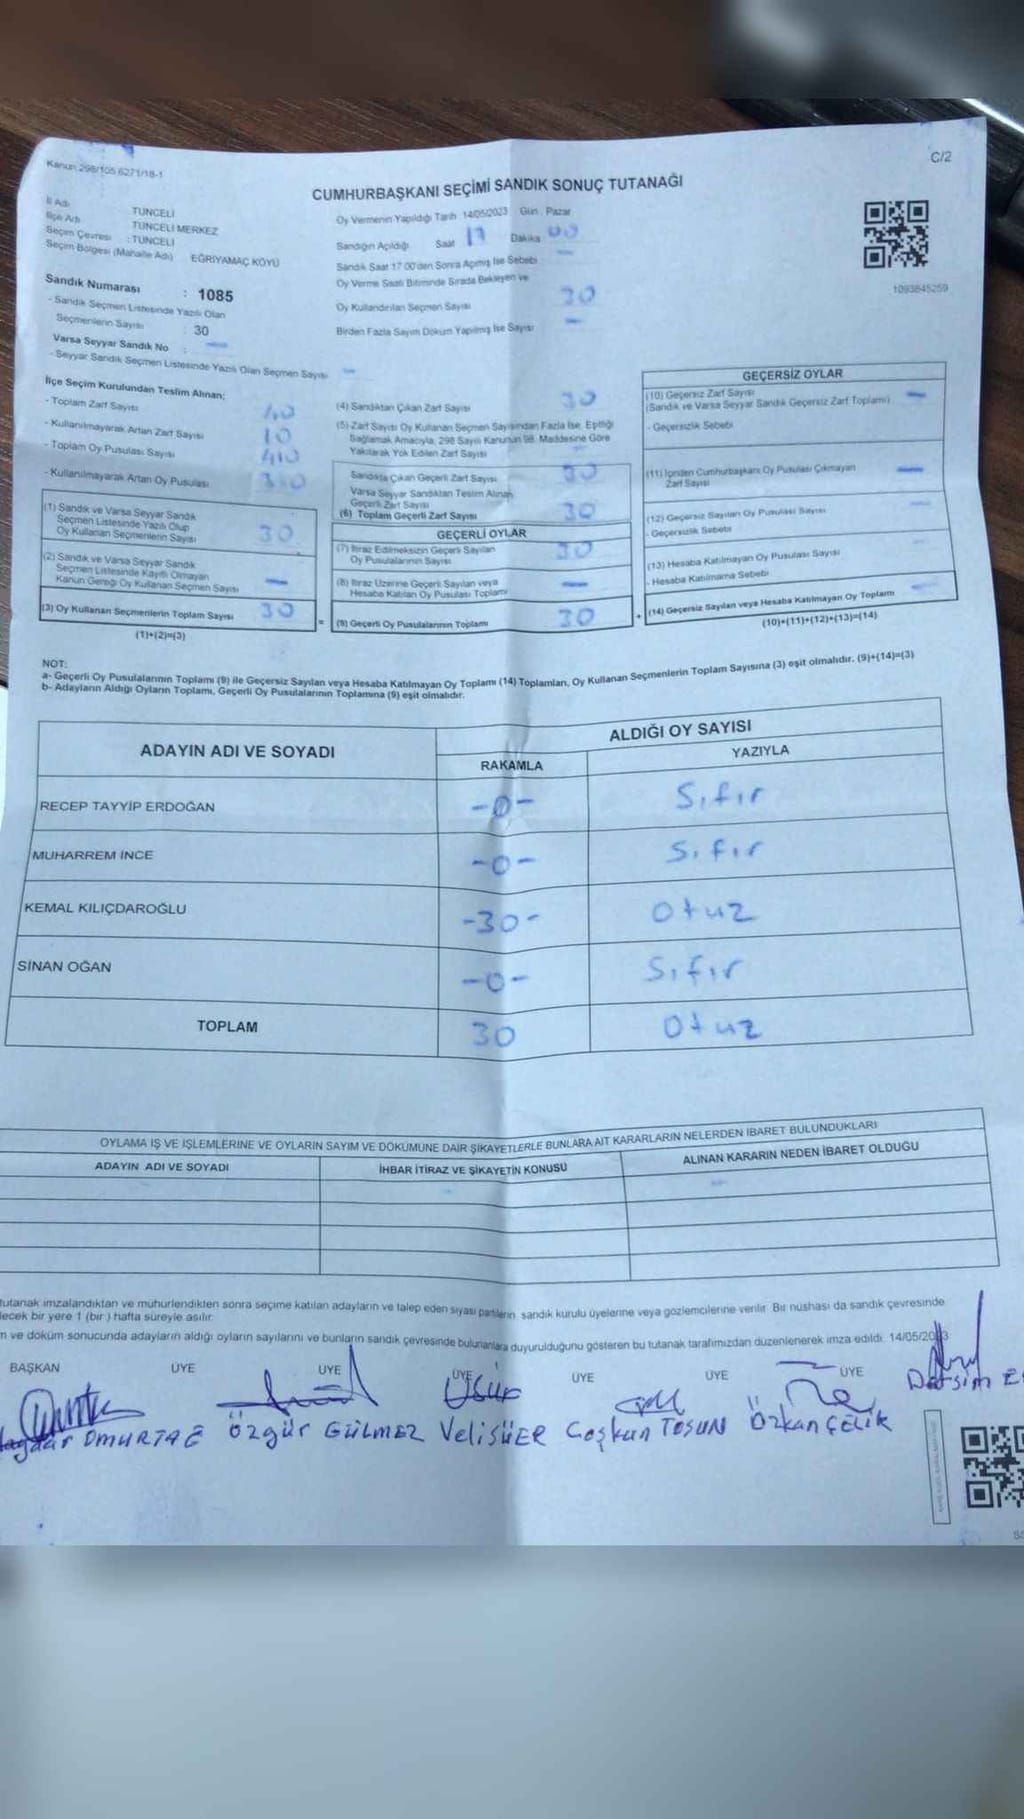 Kanun 298/105 6271/18-1
C/2
CUMHURBAŞKANI SEÇİMİ SANDIK SONUÇ TUTANAĞI
İl Adı TUNCELİ
İlçe Adı TUNCELİ MERKEZ
Seçim Çevresi : TUNCELİ
Seçim Bölgesi (Mahalle Adı) EĞRİYAMAÇ KÖYÜ
Sandık Numarası : 1085
- Sandık Seçmen Listesinde Yazılı Olan
Seçmenlerin Sayısı 30
Varsa Seyyar Sandık No : -
- Seyyar Sandık Seçmen Listesinde Yazılı Olan Seçmen Sayısı -
Oy Vermenin Yapıldığı Tarih 14/05/2023 Gün . Pazar
Sandığın Açıldığı Saat 17 Dakika 00
Sandık Saat 17 00'den Sonra Açılmış İse Sebebi -
Oy Verme Saati Bitiminde Sırada Bekleyen ve
Oy Kullandırılan Seçmen Sayısı 30
Birden Fazla Sayım Döküm Yapılmış İse Sayısı -
1093845259
İlçe Seçim Kurulundan Teslim Alınan;
- Toplam Zarf Sayısı 40
- Kullanılmayarak Artan Zarf Sayısı 10
- Toplam Oy Pusulası Sayısı 410
- Kullanılmayarak Artan Oy Pusulası
(1) Sandık ve Varsa Seyyar Sandık
Seçmen Listesinde Yazılı Olup
Oy Kullanan Seçmenlerin Sayısı 30
(2) Sandık ve Varsa Seyyar Sandık
Seçmen Listesinde Kayıtlı Olmayan
Kanun Gereği Oy Kullanan Seçmen Sayısı -
(3) Oy Kullanan Seçmenlerin Toplam Sayısı 30
(1)+(2)=(3)
(4) Sandıktan Çıkan Zarf Sayısı 30
(5) Zarf Sayısı Oy Kullanan Seçmen Sayısından Fazla İse, Eşitliği
Sağlamak Amacıyla, 298 Sayılı Kanunun 98. Maddesine Göre
Yakılarak Yok Edilen Zarf Sayısı -
Sandıkta Çıkan Geçerli Zarf Sayısı 30
Varsa Seyyar Sandıktan Teslim Alınan
Geçerli Zarf Sayısı
(6) Toplam Geçerli Zarf Sayısı 30
=
GEÇERLİ OYLAR
(7) İtiraz Edilmeksizin Geçerli Sayılan
Oy Pusulalarının Sayısı 30
(8) İtiraz Üzerine Geçerli Sayılan veya
Hesaba Katılan Oy Pusulası Toplamı -
(9) Geçerli Oy Pusulalarının Toplamı 30
+
GEÇERSİZ OYLAR
(10) Geçersiz Zarf Sayısı
(Sandık ve Varsa Seyyar Sandık Geçersiz Zarf Toplamı) -
- Geçersizlik Sebebi
(11) İçinden Cumhurbaşkanı Oy Pusulası Çıkmayan
Zarf Sayısı -
(12) Geçersiz Sayılan Oy Pusulası Sayısı -
- Geçersizlik Sebebi
(13) Hesaba Katılmayan Oy Pusulası Sayısı -
- Hesaba Katılmama Sebebi
(14) Geçersiz Sayılan veya Hesaba Katılmayan Oy Toplamı -
(10)+(11)+(12)+(13)=(14)
NOT:
a- Geçerli Oy Pusulalarının Toplamı (9) ile Geçersiz Sayılan veya Hesaba Katılmayan Oy Toplamı (14) Toplamları, Oy Kullanan Seçmenlerin Toplam Sayısına (3) eşit olmalıdır. (9)+(14)=(3)
b- Adayların Aldığı Oyların Toplamı, Geçerli Oy Pusulalarının Toplamına (9) eşit olmalıdır.
ADAYIN ADI VE SOYADI
ALDIĞI OY SAYISI
RAKAMLA YAZIYLA
RECEP TAYYİP ERDOĞAN -0- Sıfır
MUHARREM İNCE -0- Sıfır
KEMAL KILIÇDAROĞLU -30- Otuz
SİNAN OĞAN -0- Sıfır
TOPLAM 30 Otuz
OYLAMA İŞ VE İŞLEMLERİNE VE OYLARIN SAYIM VE DÖKÜMÜNE DAİR ŞİKAYETLERLE BUNLARA AİT KARARLARIN NELERDEN İBARET BULUNDUKLARI
ADAYIN ADI VE SOYADI İHBAR İTİRAZ VE ŞİKAYETİN KONUSU ALINAN KARARIN NEDEN İBARET OLDUĞU
- -
tutanak imzalandıktan ve mühürlendikten sonra seçime katılan adayların ve talep eden siyasi partilerin sandık kurulu üyelerine veya gözlemcilerine verilir. Bir nüshası da sandık çevresinde
ilecek bir yere 1 (bir ) hafta süreyle asılır
m ve döküm sonucunda adayların aldığı oyların sayılarını ve bunların sandık çevresinde bulunanlara duyurulduğunu gösteren bu tutanak tarafımızdan düzenlenerek imza edildi. 14/05/2023
BAŞKAN ÜYE ÜYE ÜYE ÜYE ÜYE ÜYE
OMURTAG Özgür GÜLMEZ Veli SÜER Coşkun TOSUN Özkan ÇELİK Dersim E